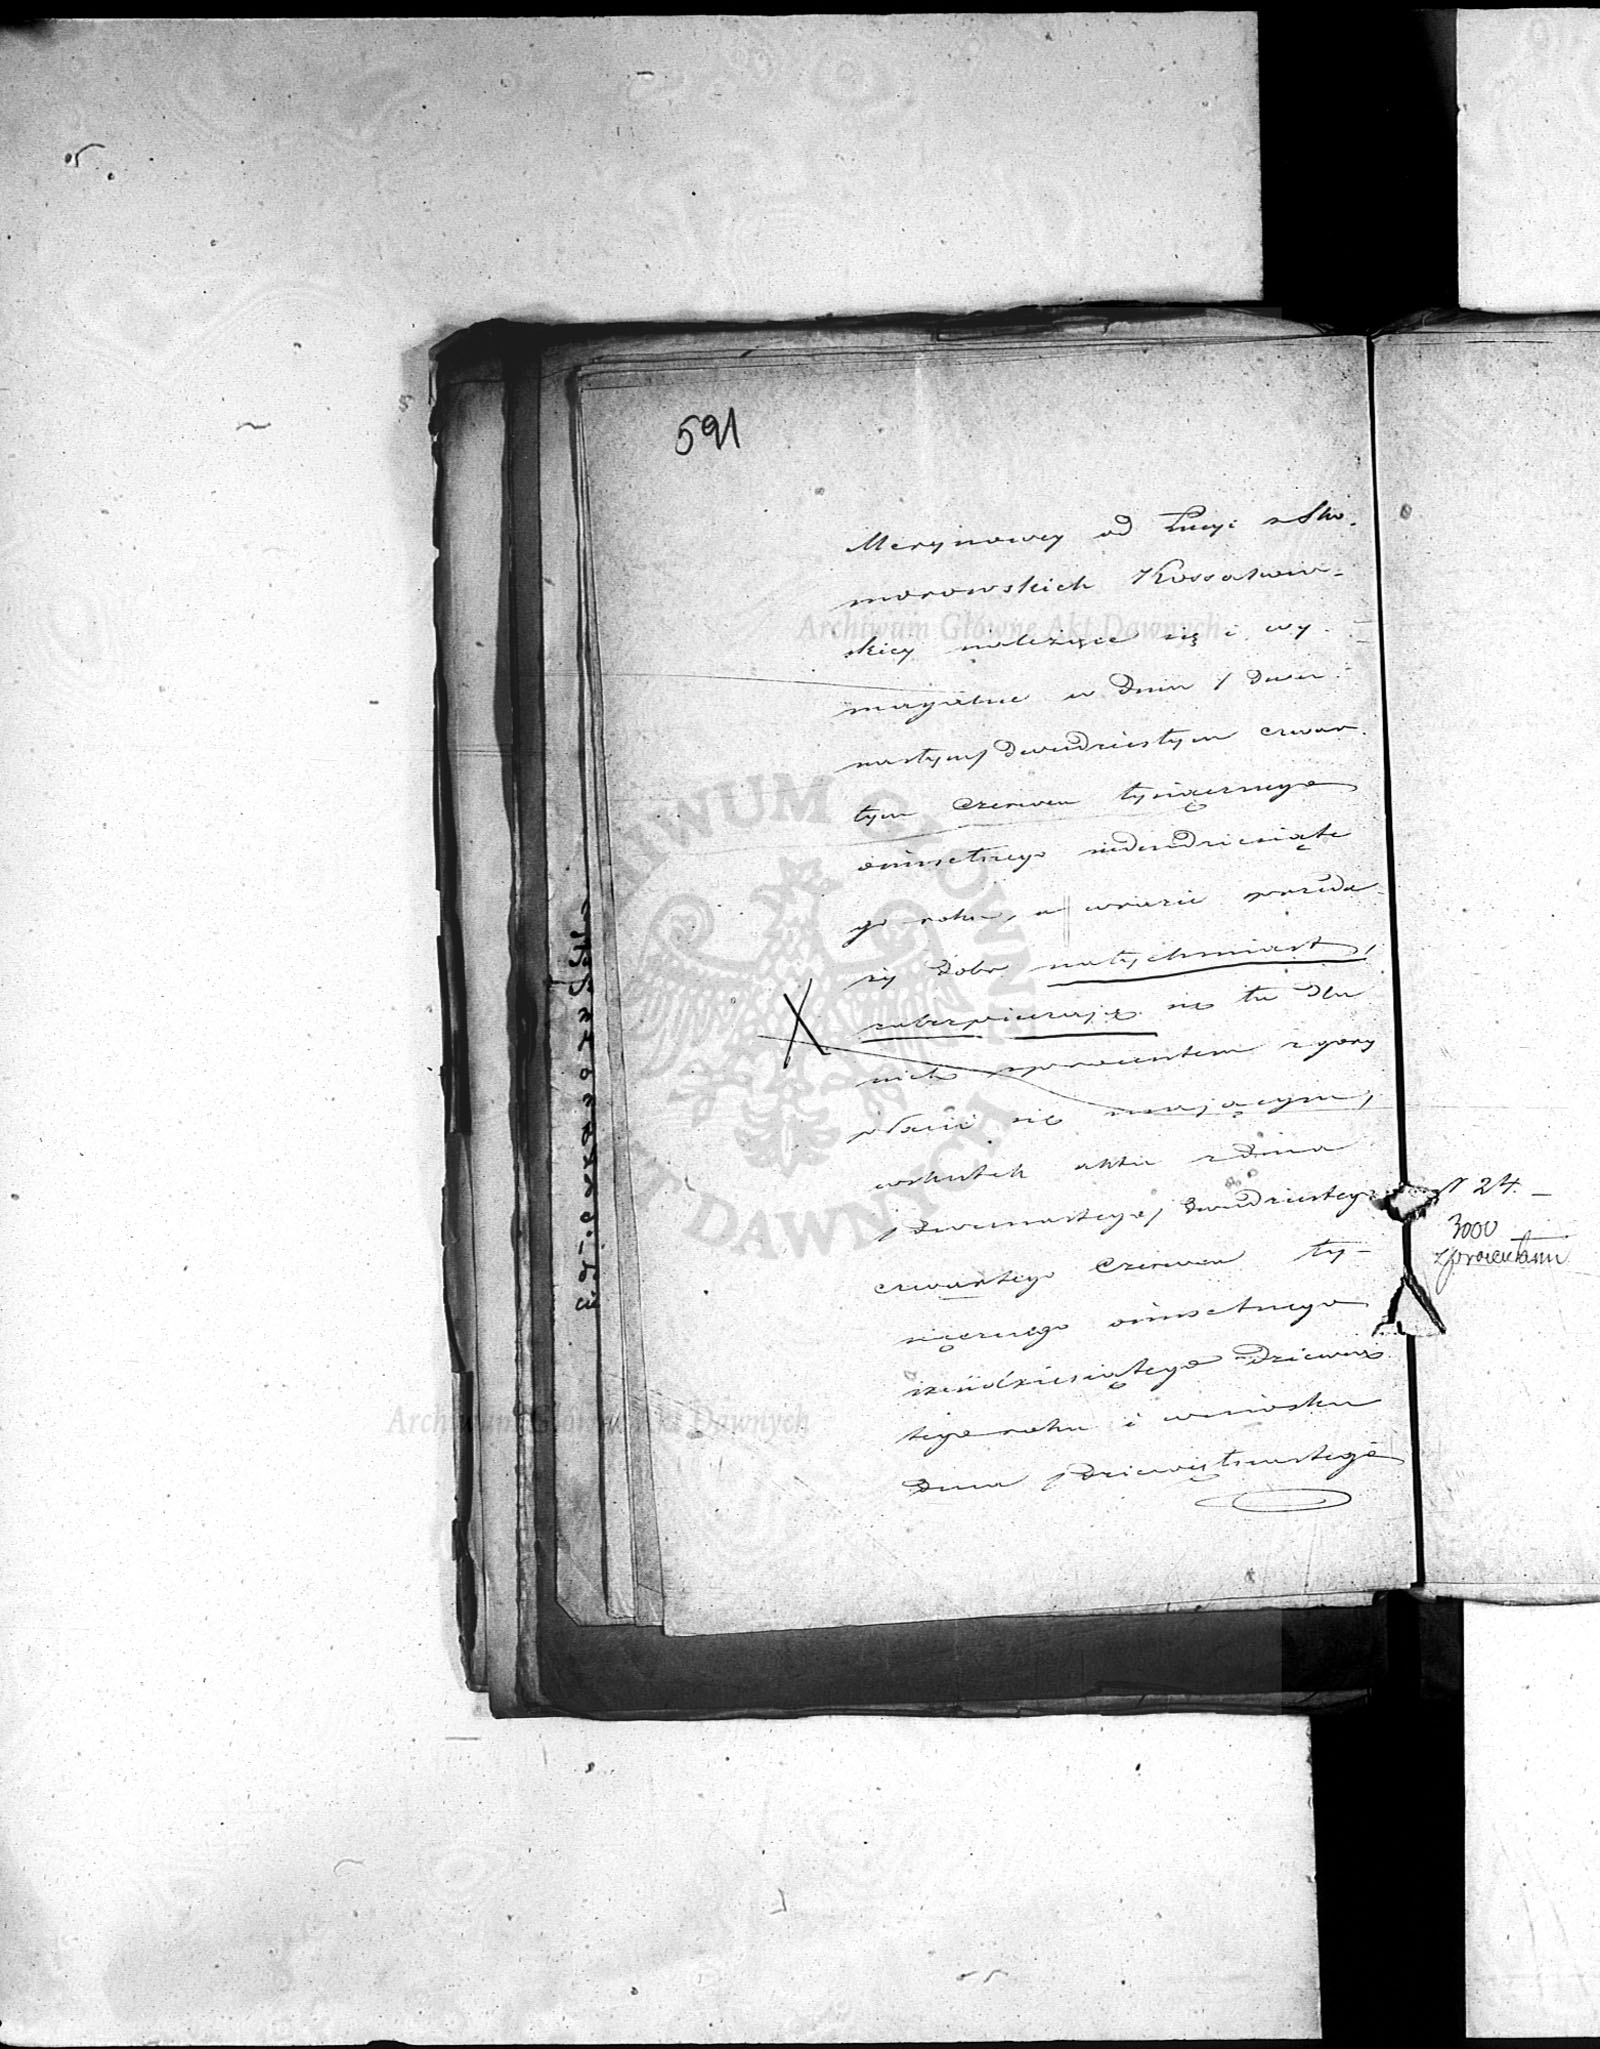 591
Merynowey od Łucyi z Sko-
morowskich Kossakow-
skiey należące się i wy-
magalne w dniu / dwu-
nastym / dwudziestym czwar-
tym Czerwca tysiącznego
ośmsetnego siedmdziesiąte-
go roku, a w razie sprzeda-
ży dobr natychmiast,
zabezpieczają się tu dla
nich z procentem z góry
płacić się mającym,
wskutek aktu z dnia
/ dwunastego / dwudziestego
czwartego Czerwca ty-
siącznego ośmsetnego
sześćdziesiątego dziewią-
tego roku i wniosku
dnia / dziewiętnastego
N 24.
3000
z procentami
Archiwum Główne Akt Dawnych
Archiwum Główne Akt Dawnych
ARCHIWUM GŁÓWNE AKT DAWNYCH